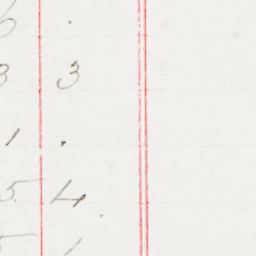 6 .
3 3
1 .
5 4
5 1